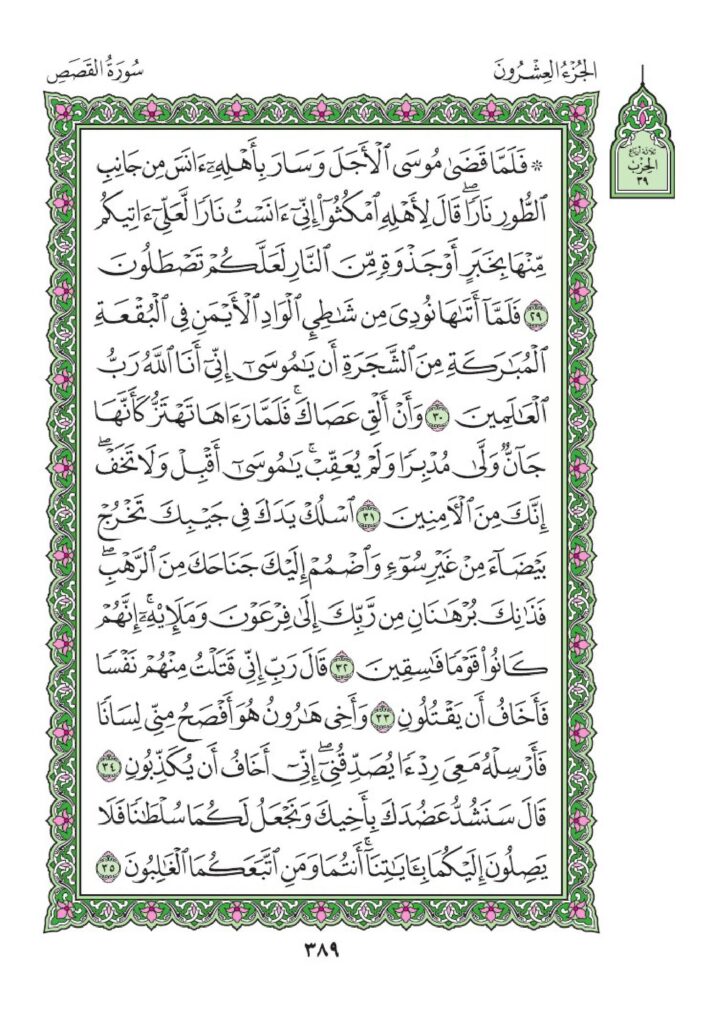 الجزء العشرون
سورة القصص
ثلاثة أرباع
الحزب
٣٩
* فَلَمَّا قَضَىٰ مُوسَى ٱلْأَجَلَ وَسَارَ بِأَهْلِهِۦٓ ءَانَسَ مِن جَانِبِ
ٱلطُّورِ نَارًاۖ قَالَ لِأَهْلِهِ ٱمْكُثُوٓا۟ إِنِّىٓ ءَانَسْتُ نَارًا لَّعَلِّىٓ ءَاتِيكُم
مِّنْهَا بِخَبَرٍ أَوْ جَذْوَةٍ مِّنَ ٱلنَّارِ لَعَلَّكُمْ تَصْطَلُونَ
٢٩ فَلَمَّآ أَتَىٰهَا نُودِىَ مِن شَٰطِئِ ٱلْوَادِ ٱلْأَيْمَنِ فِى ٱلْبُقْعَةِ
ٱلْمُبَٰرَكَةِ مِنَ ٱلشَّجَرَةِ أَن يَٰمُوسَىٰٓ إِنِّىٓ أَنَا ٱللَّهُ رَبُّ
ٱلْعَٰلَمِينَ ٣٠ وَأَنْ أَلْقِ عَصَاكَۚ فَلَمَّا رَءَاهَا تَهْتَزُّ كَأَنَّهَا
جَآنٌّ وَلَّىٰ مُدْبِرًا وَلَمْ يُعَقِّبْۚ يَٰمُوسَىٰٓ أَقْبِلْ وَلَا تَخَفْۖ
إِنَّكَ مِنَ ٱلْءَامِنِينَ ٣١ ٱسْلُكْ يَدَكَ فِى جَيْبِكَ تَخْرُجْ
بَيْضَآءَ مِنْ غَيْرِ سُوٓءٍ وَٱضْمُمْ إِلَيْكَ جَنَاحَكَ مِنَ ٱلرَّهْبِۖ
فَذَٰنِكَ بُرْهَٰنَانِ مِن رَّبِّكَ إِلَىٰ فِرْعَوْنَ وَمَلَإِي۟هِۦٓۚ إِنَّهُمْ
كَانُوا۟ قَوْمًا فَٰسِقِينَ ٣٢ قَالَ رَبِّ إِنِّى قَتَلْتُ مِنْهُمْ نَفْسًا
فَأَخَافُ أَن يَقْتُلُونِ ٣٣ وَأَخِى هَٰرُونُ هُوَ أَفْصَحُ مِنِّى لِسَانًا
فَأَرْسِلْهُ مَعِىَ رِدْءًا يُصَدِّقُنِىٓۖ إِنِّىٓ أَخَافُ أَن يُكَذِّبُونِ ٣٤
قَالَ سَنَشُدُّ عَضُدَكَ بِأَخِيكَ وَنَجْعَلُ لَكُمَا سُلْطَٰنًا فَلَا
يَصِلُونَ إِلَيْكُمَا بِـَٔايَٰتِنَآۚ أَنتُمَا وَمَنِ ٱتَّبَعَكُمَا ٱلْغَٰلِبُونَ ٣٥
٣٨٩